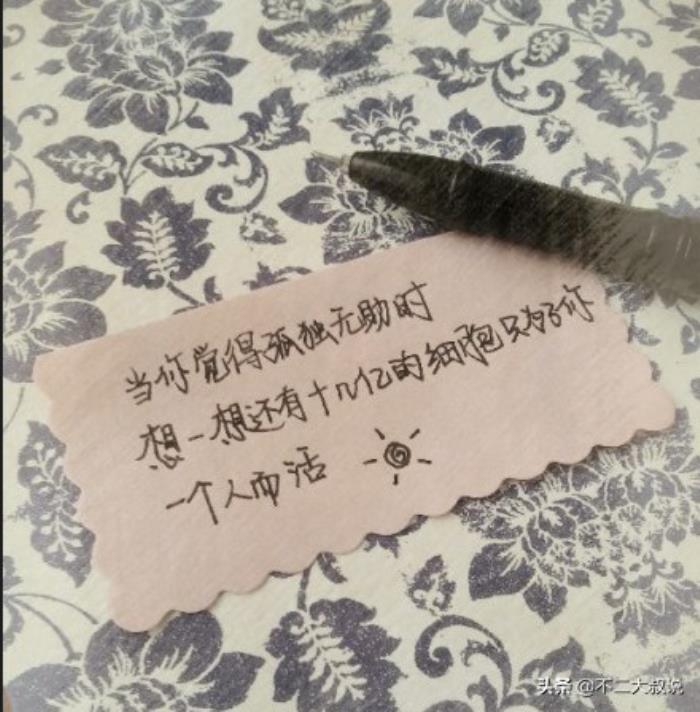 当你觉得孤独无助时
想一想还有十几亿的细胞只为了你
一个人而活
头条 @不二大叔说